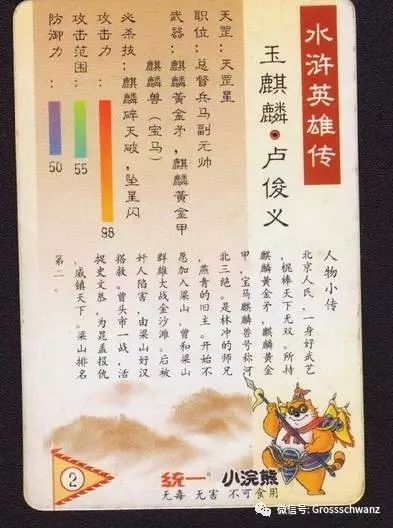 水浒英雄传
玉麒麟·卢俊义
天罡：天罡星
职位：总督兵马副元帅
武器：麒麟黄金矛，麒麟黄金甲
麒麟兽（宝马）
必杀技：麒麟碎天破，坠星闪
攻击力：
98
攻击范围：
55
防御力：
50
人物小传
北京人氏，一身好武艺
，棍棒天下无双。所持
麒麟黄金矛，麒麟黄金
甲，宝马麒麟兽号称河
北三绝。是林冲的师兄
，燕青的旧主。开始不
愿加入梁山，曾和梁山
群雄大战金沙滩。后被
奸人陷害，由梁山好汉
搭救。曾头市一战，活
捉史文恭，为晁盖报仇
，威镇天下。梁山排名
第二。
2
统一® 小浣熊
无毒 无害 不可食用
微信号: Grossschwanz